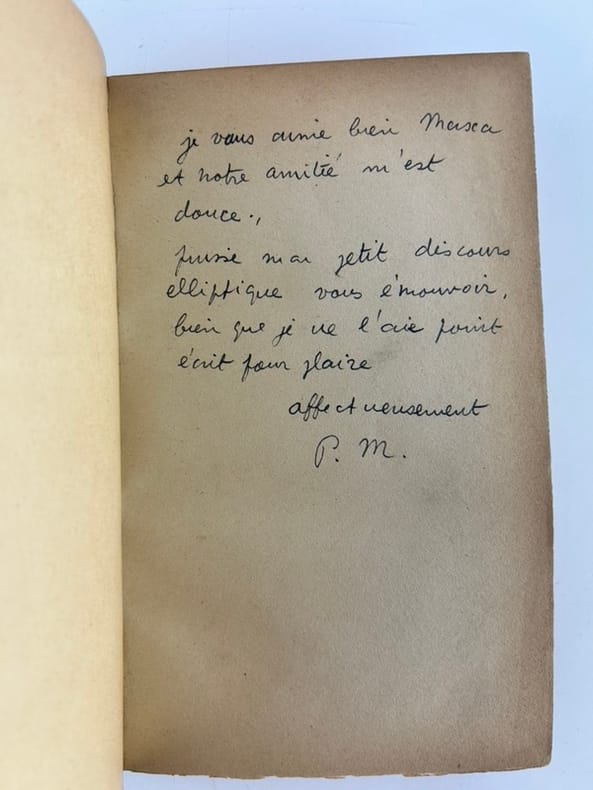 je vous aime bien Masca
et notre amitié m'est
douce.,
puisse mon petit discours
elliptique vous émouvoir,
bien que je ne l'aie point
écrit pour plaire
affectueusement
P. M.